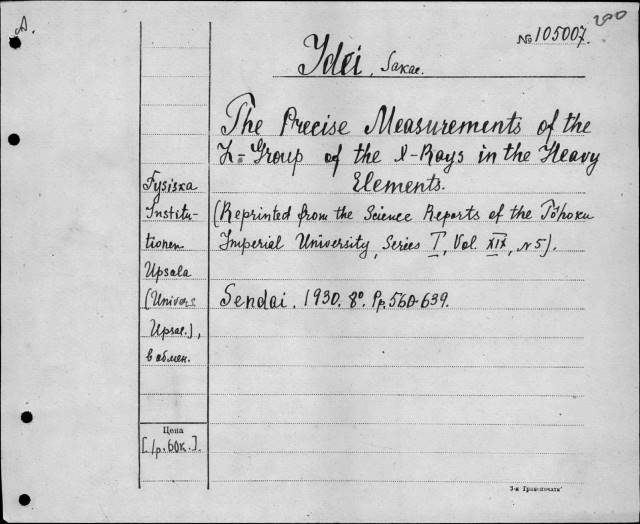 A.
200
№ 105007.
Idei, Sakae.
The Precise Measurements of the
L-Group of the X-Rays in the Heavy
Elements.
Fysiska
Institu-
tionen
Upsala
(Univers
Upsal.),
в обмен.
(Reprinted from the Science Reports of the Tôhoku
Imperial University, Series I, Vol. XIX, N 5).
Sendai. 1930. 8º. Pp. 560-639.
Цена
[1р. 60к.].
3-я Гравопечать